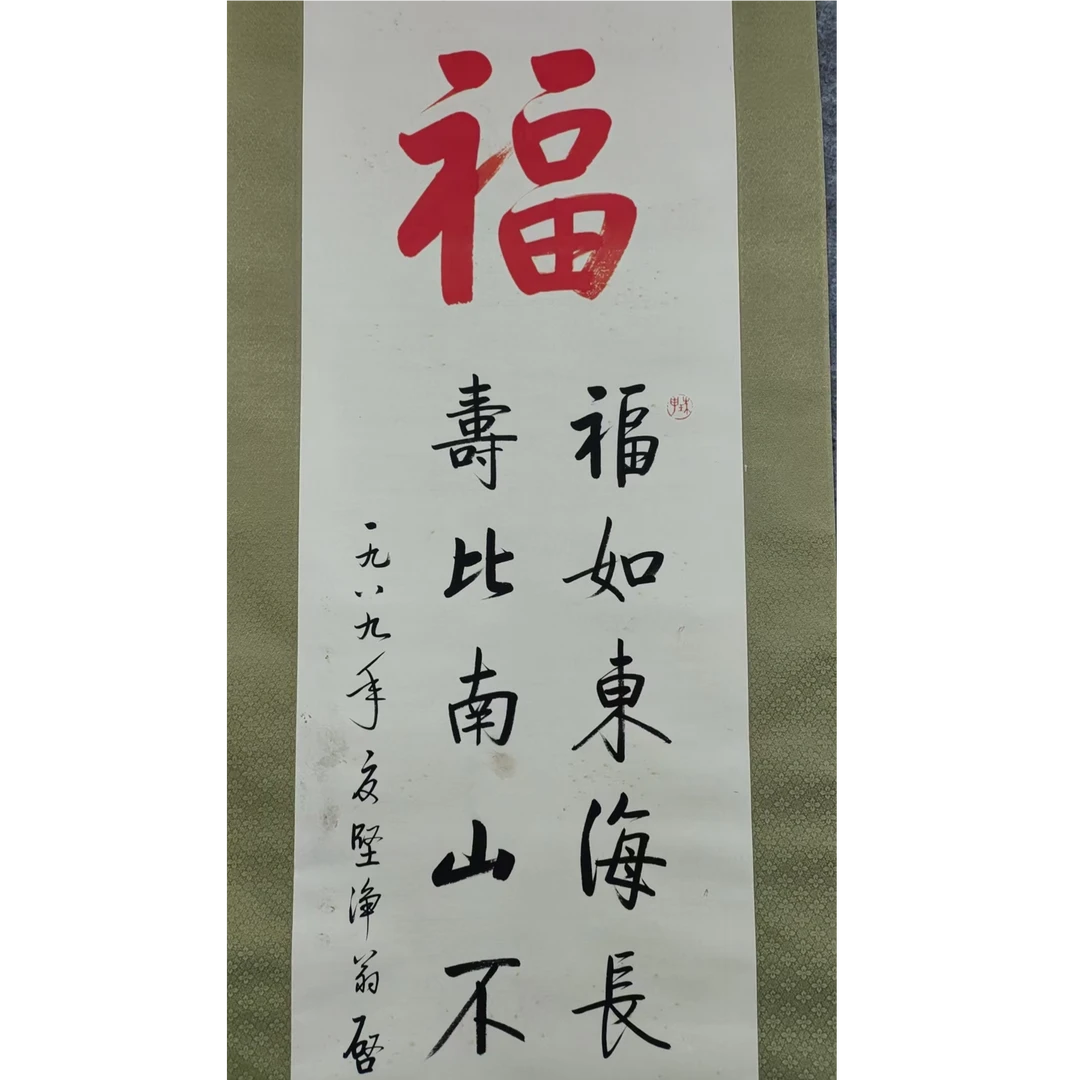 福
福如東海長
壽比南山不
一九八九年夏堅淨翁啓